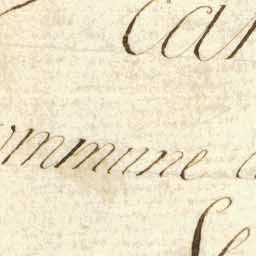 Can
ommune d
Se